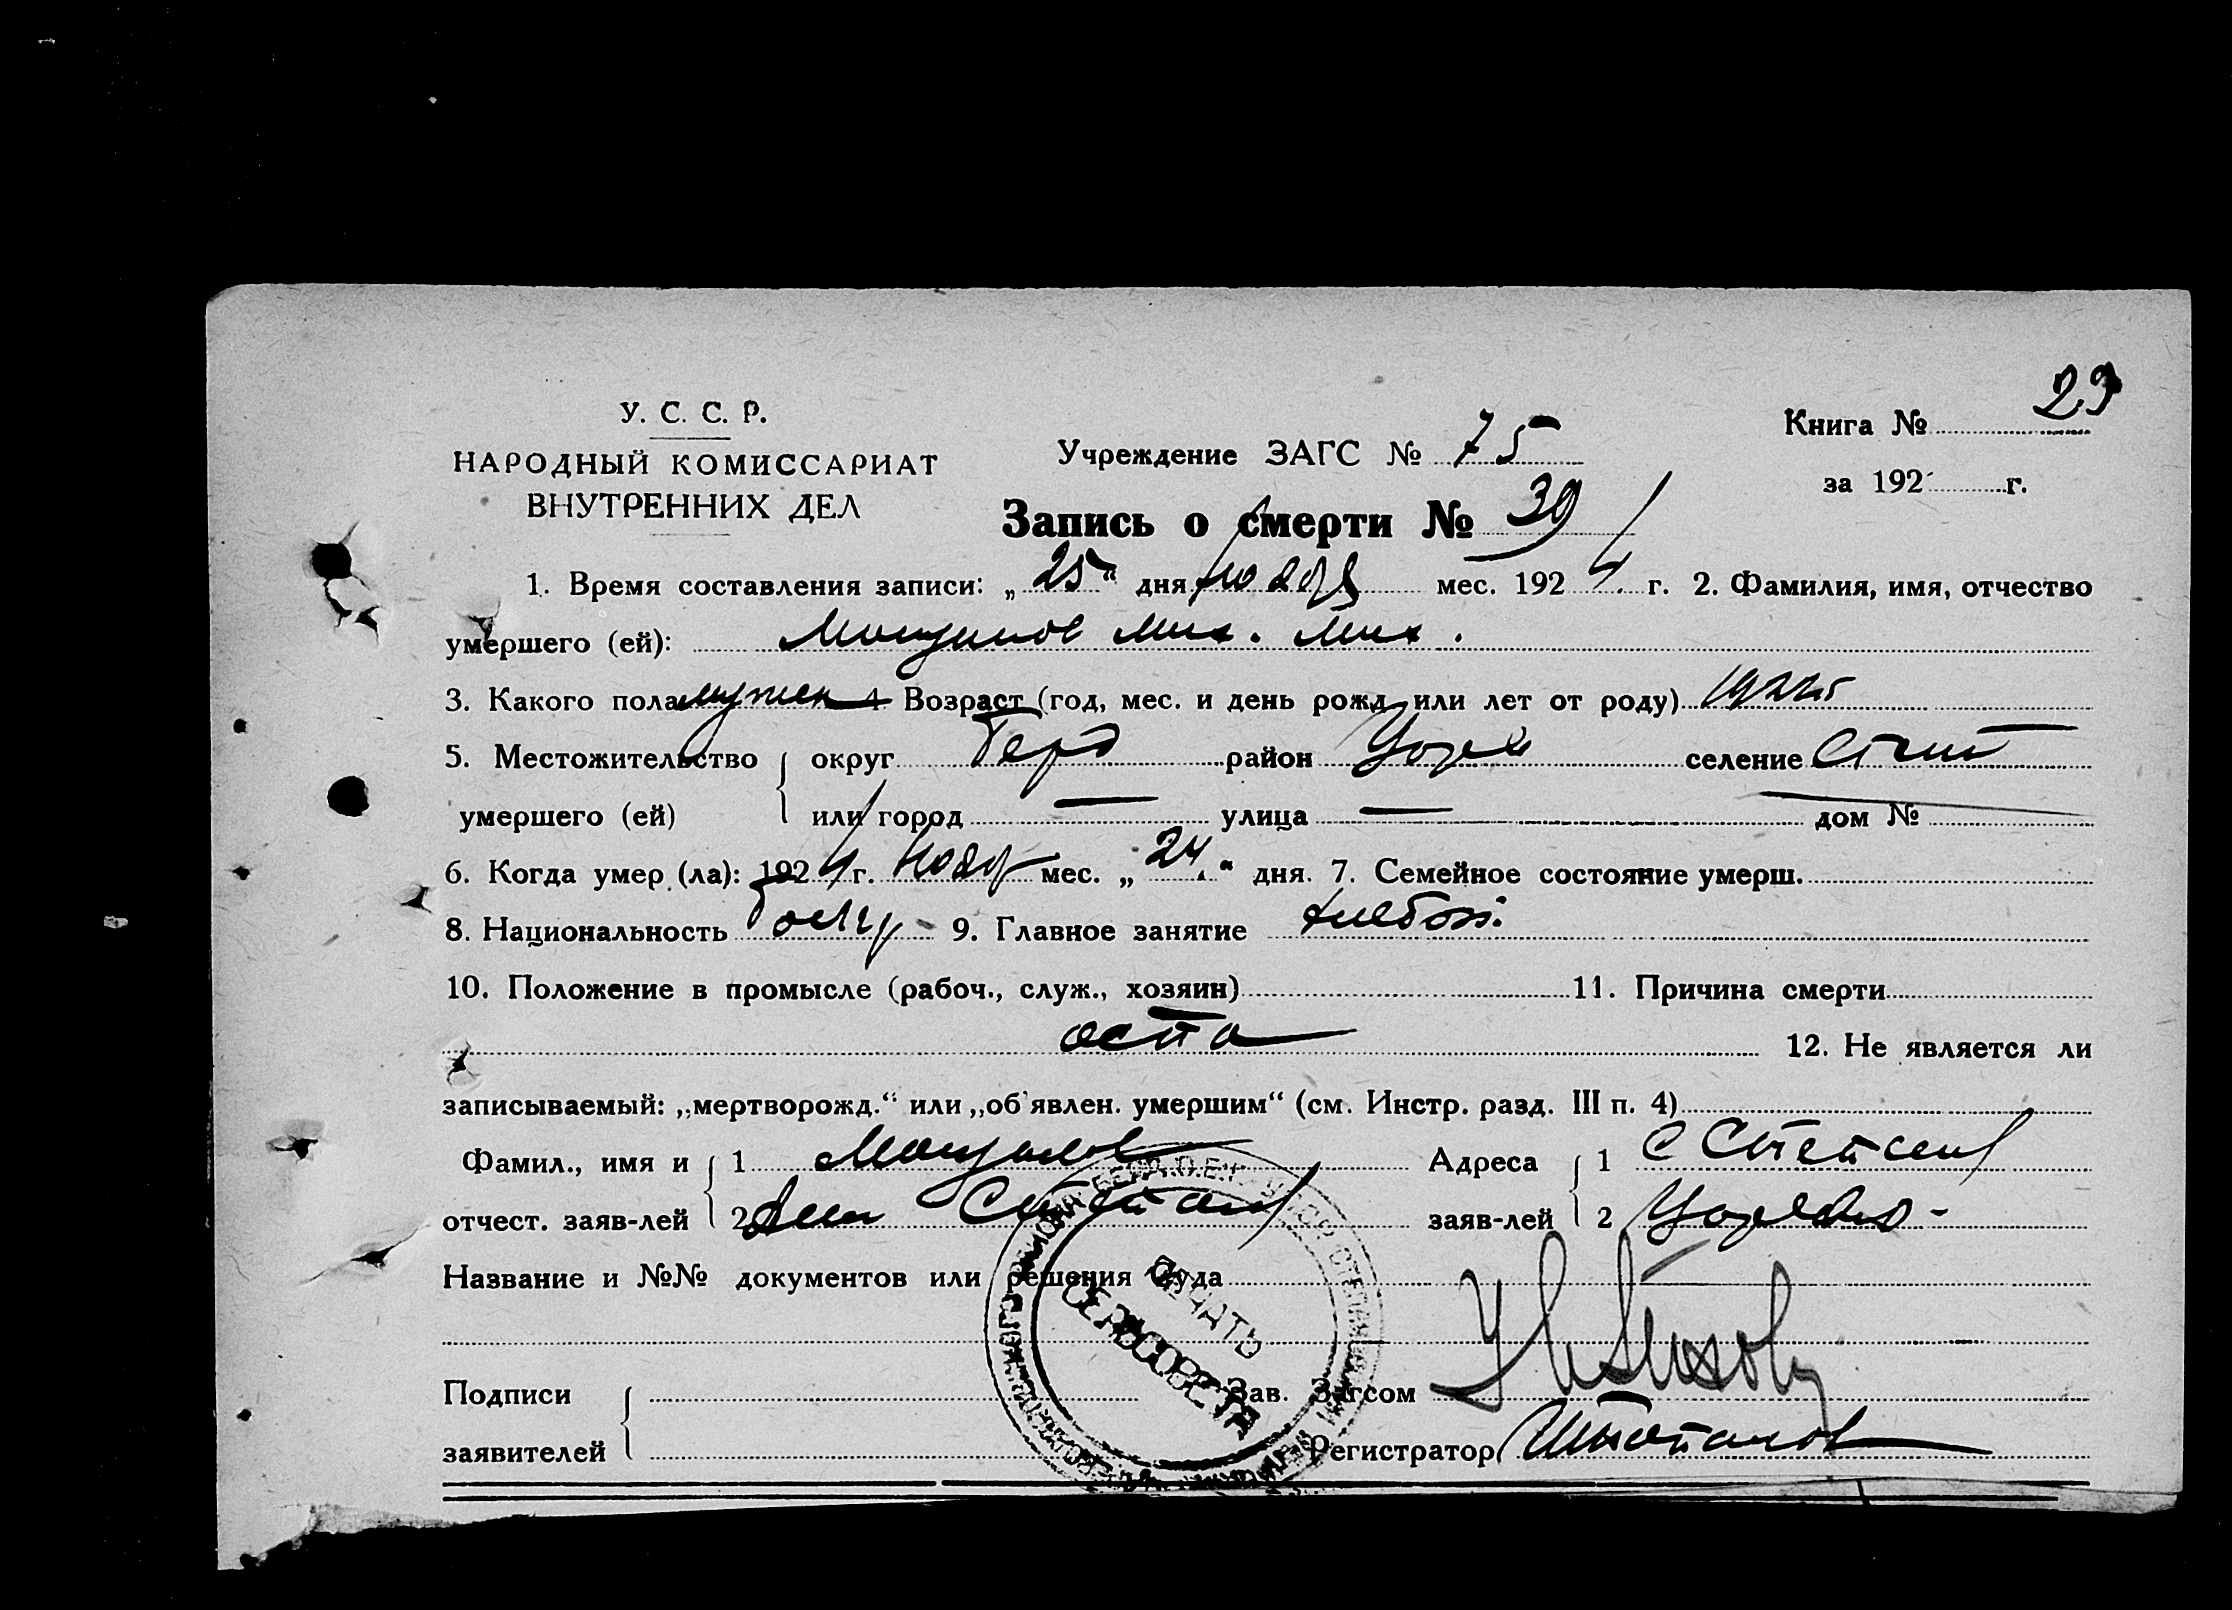 У. С. С. Р.
НАРОДНЫЙ КОМИССАРИАТ
ВНУТРЕННИХ ДЕЛ
Учреждение ЗАГС № 75
Книга № 29
за 192 г.
Запись о смерти № 39
1. Время составления записи: „25“ дня ноября мес. 1924 г. 2. Фамилия, имя, отчество
умершего (ей): Мих. Мих.
3. Какого пола мужск 4 Возраст (год, мес. и день рожд или лет от роду)
5. Местожительство округ район селение
умершего (ей) или город — улица — дом №
6. Когда умер (ла): 1924 г. нояб мес. „24“ дня. 7. Семейное состояние умерш.
8. Национальность 9. Главное занятие хлебоп.
10. Положение в промысле (рабоч., служ., хозяин) 11. Причина смерти
оспа 12. Не является ли
записываемый: „мертворожд.“ или „об'явлен. умершим“ (см. Инстр. разд. III п. 4)
Фамил., имя и 1 Адреса 1 с
отчест. заяв-лей 2 Степан заяв-лей 2
Название и №№ документов или решения Суда
ПЕЧАТЬ
СЕЛЬСОВЕТА
Подписи Зав. Загсом
заявителей Регистратор